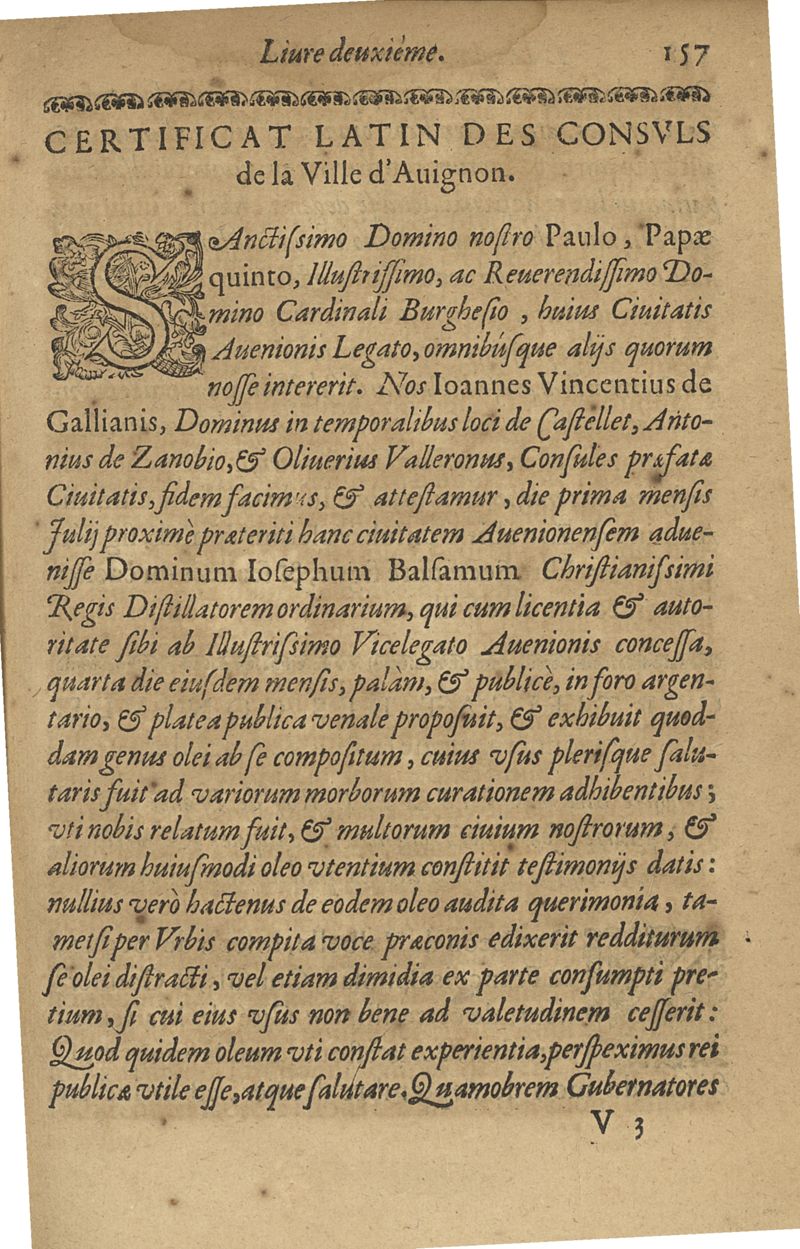 Liure deuxiéme. 157
CERTIFICAT LATIN DES CONSVLS
de la Ville d'Auignon.
SAnctiſsimo Domino noſtro Paulo, Papæ
quinto, Illuſtriſſimo, ac Reuerendiſſimo Do-
mino Cardinali Burgheſio, huius Ciuitatis
Auenionis Legato, omnibúſque alijs quorum
noſſe intererit. Nos Ioannes Vincentius de
Gallianis, Dominus in temporalibus loci de Caſtellet, Anto-
nius de Zanobio, & Oliuerius Valleronus, Conſules præfatæ
Ciuitatis, fidem facimus, & atteſtamur, die prima menſis
Julij proximè præteriti hanc ciuitatem Auenionenſem adue-
niſſe Dominum Ioſephum Balſamum Chriſtianiſsimi
Regis Diſtillatorem ordinarium, qui cum licentia & auto-
ritate ſibi ab Illuſtriſsimo Vicelegato Auenionis conceſſa,
quarta die eiuſdem menſis, palàm, & publicè, in foro argen-
tario, & platea publica venale propoſuit, & exhibuit quod-
dam genus olei ab ſe compoſitum, cuius vſus pleriſque ſalu-
taris fuit ad variorum morborum curationem adhibentibus;
vti nobis relatum fuit, & multorum ciuium noſtrorum, &
aliorum huiuſmodi oleo vtentium conſtitit teſtimonijs datis:
nullius verò hactenus de eodem oleo audita querimonia, ta-
metſi per Vrbis compita voce præconis edixerit redditurum
ſe olei diſtracti, vel etiam dimidia ex parte conſumpti pre-
tium, ſi cui eius vſus non bene ad valetudinem ceſſerit:
Quod quidem oleum vti conſtat experientia, perſpeximus rei
publicæ vtile eſſe, atque ſalutare. Quamobrem Gubernatores
V 3